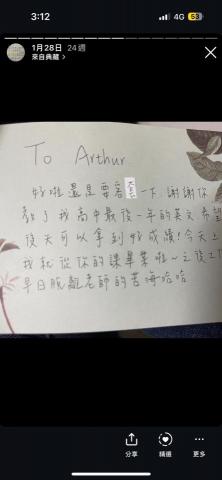 3:12
4G 53
1月28日 24 週
來自典藏 >
To Arthur
好啦還是要客套一下,謝謝你
教了我高中最後一年的英文希望
後天可以拿到好成績!今天上
我就從你的課畢業啦~之後工
早日脫離老師的苦海哈哈
分享
精選
更多